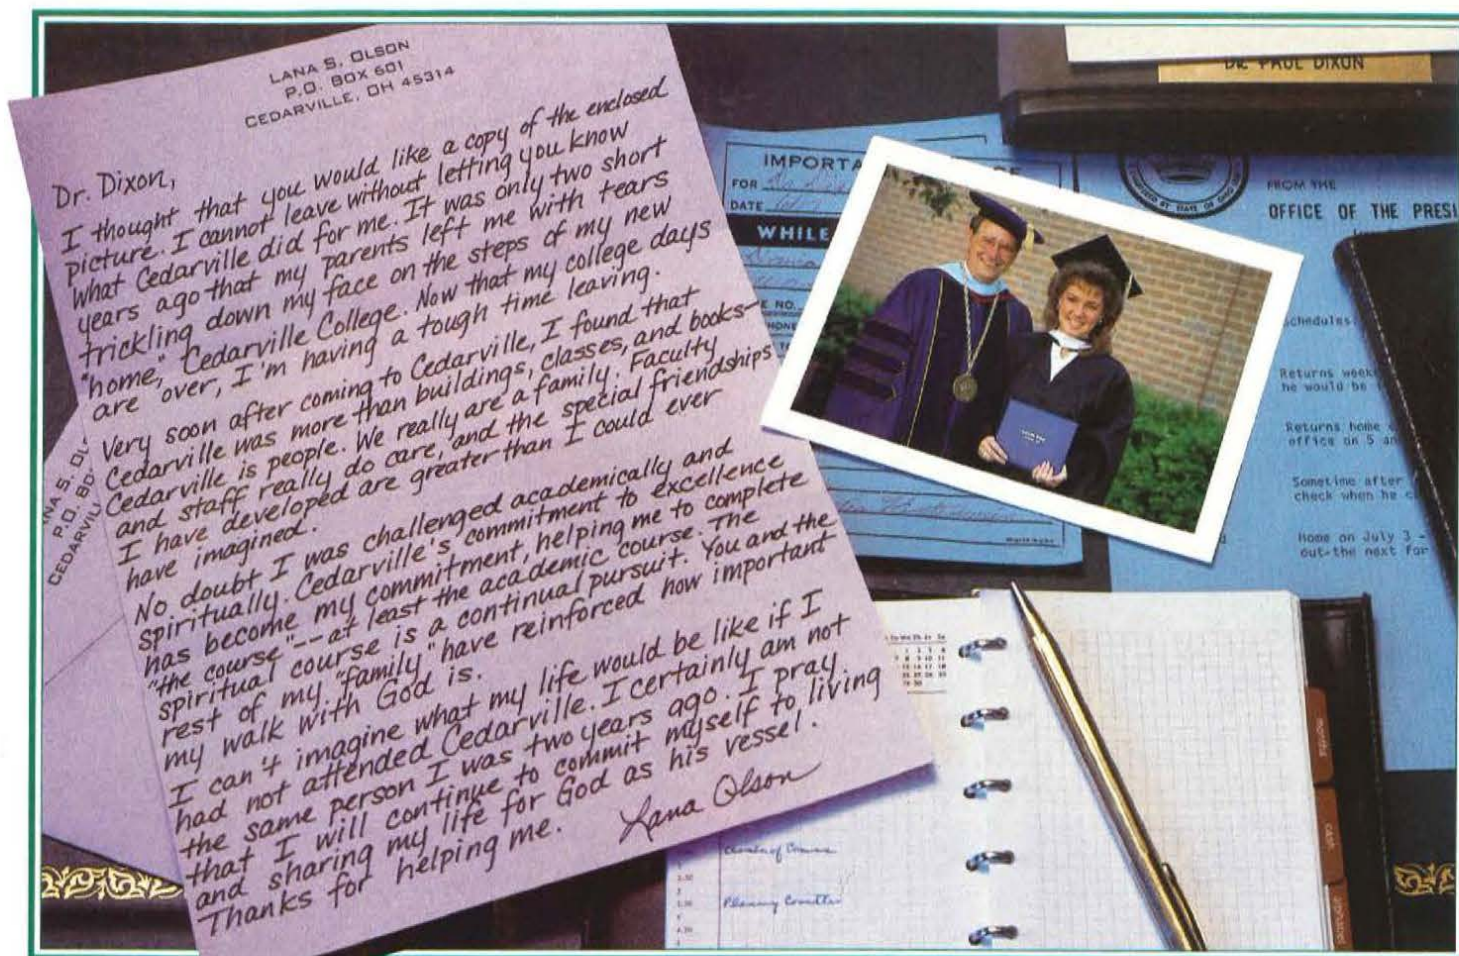 LANA S. OLSON
P.O. BOX 601
CEDARVILLE, OH 45314
Dr. Dixon,
I thought that you would like a copy of the enclosed
picture. I cannot leave without letting you know
what Cedarville did for me. It was only two short
years ago that my parents left me with tears
trickling down my face on the steps of my new
"home," Cedarville College. Now that my college days
are over, I'm having a tough time leaving.
Very soon after coming to Cedarville, I found that
Cedarville was more than buildings, classes, and books—
Cedarville is people. We really are a family. Faculty
and staff really do care, and the special friendships
I have developed are greater than I could ever
have imagined.
No doubt I was challenged academically and
spiritually. Cedarville's commitment to excellence
has become my commitment, helping me to complete
"the course"--at least the academic course. The
spiritual course is a continual pursuit. You and the
rest of my "family" have reinforced how important
my walk with God is.
I can't imagine what my life would be like if I
had not attended Cedarville. I certainly am not
the same person I was two years ago. I pray
that I will continue to commit myself to living
and sharing my life for God as his vessel.
Thanks for helping me.
Lana Olson
ANA S. OL
P.O. BO
CEDARVIL
DR. PAUL DIXON
IMPORTA
FOR
DATE
WHILE
FROM THE
OFFICE OF THE PRESI
Schedules
Returns week
he would be
Returns home
office on 5 an
Sometime after
check when he c
Home on July 3 -
out-the next for
Chamber of Comm
Planning Committee